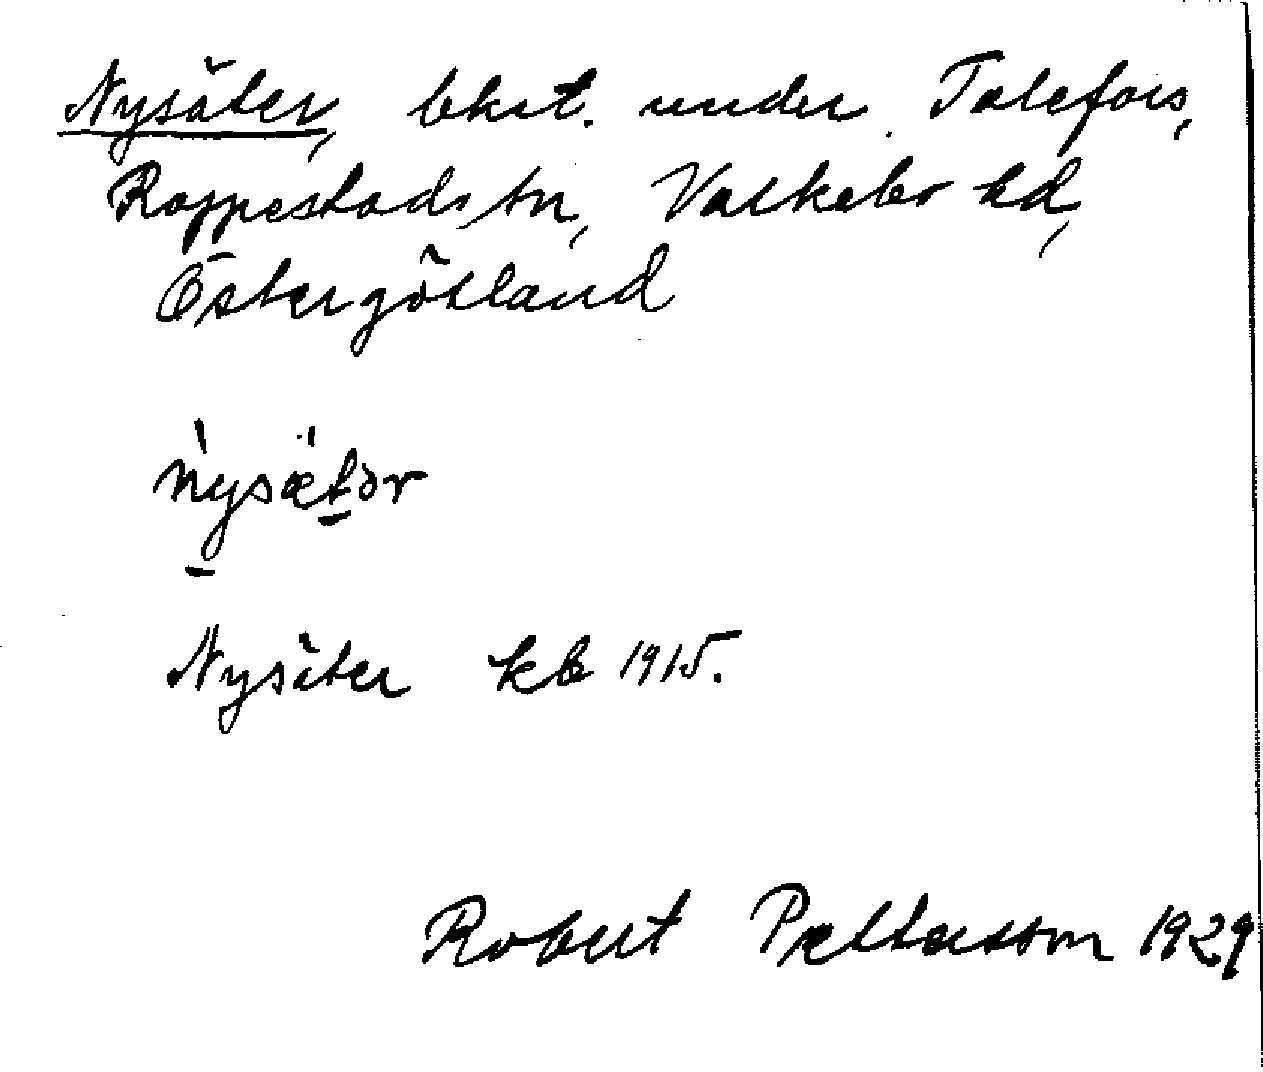 Nysäter, bkst. under Talefors,
Rappestads sn, Valkebo hd,
Östergötland
nysætər
Nysäter kb 1915.
Robert Pettersson 1929